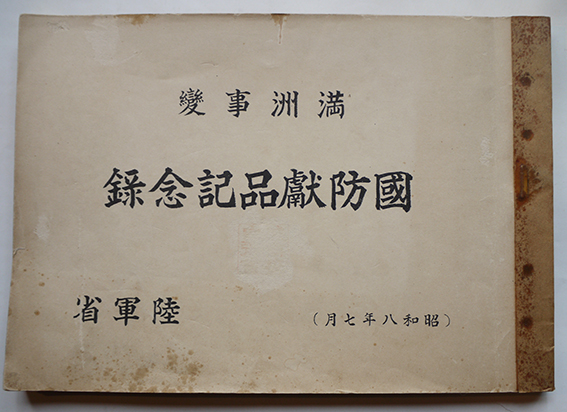 満洲事變
國防獻品記念録
(昭和八年七月)
陸軍省